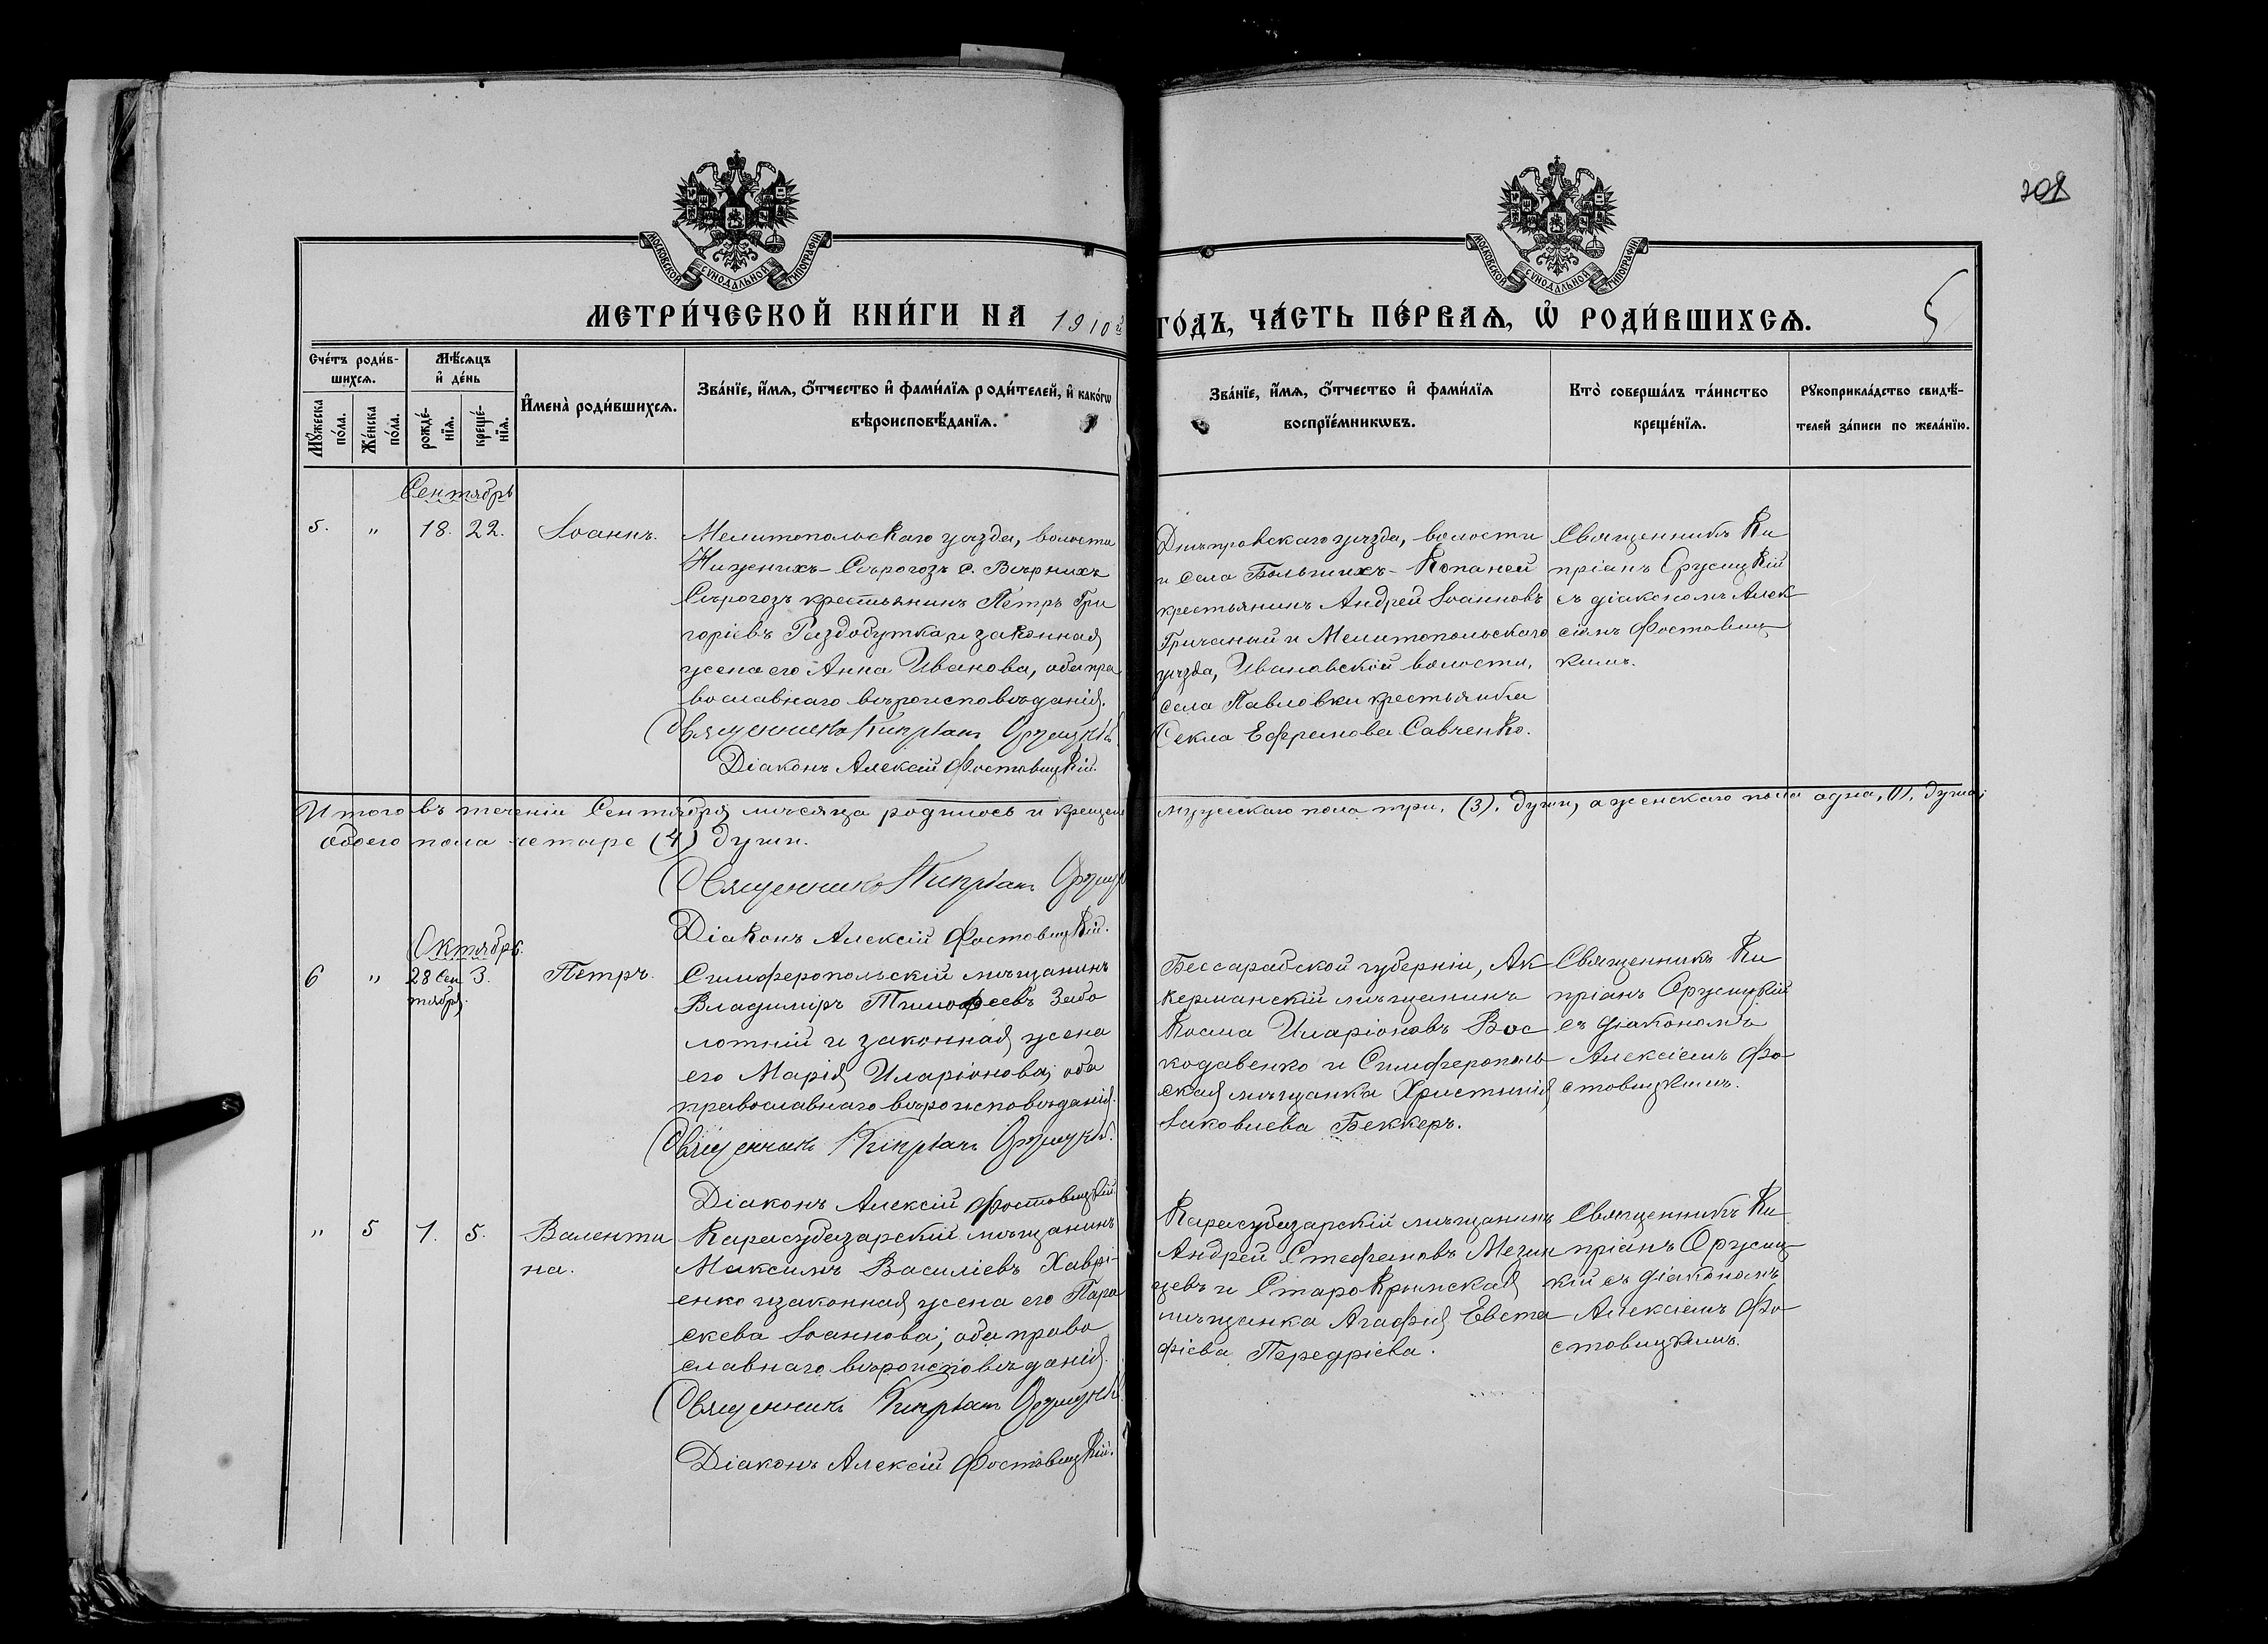 208
5
МОСКОВСКОЙ СѴНОДАЛЬНОЙ ТИПОГРАФІИ
МОСКОВСКОЙ СѴНОДАЛЬНОЙ ТИПОГРАФІИ
МЕТРИ́ЧЕСКОЙ КНИ́ГИ НА 1910 й ГО́ДЪ, ЧА́СТЬ ПЕ́РВАЯ, Ѽ РОДИ́ВШИХСЯ.
Сче́тъ роди́вшихся.
Мѣ́сяцъ и́ де́нь
Мꙋ́жеска по́ла.
Же́нска по́ла.
рожде́нїя.
креще́нїя.
И҆мена̀ роди́вшихся.
Зва́нїе, и҆́мя, ѻ҆́тчество и҆ фами́лїя роди́телей, и҆ како́гѡ
вѣроисповѣ́данїя.
Зва́нїе, и҆́мя, ѻ҆́тчество и҆ фами́лїя
воспрїе́мникѡвъ.
Кто̀ соверша́лъ та́инство
креще́нїя.
Рꙋкоприкла́дство свидѣ́-
телей за́писи по жела́нїю.
Сентябрь
5. " 18. 22. Іоаннъ.
Мелитопольскаго уѣзда, волости
Нижнихъ-Сѣрогозъ с. Верхнихъ
Сѣрогозъ крестьянинъ Петръ Гри
горіевъ Раздобутка и законная
жена его Анна Иванова, оба пра
вославнаго вѣроисповѣданія.
Священникъ Кипріанъ Оржицкій.
Діаконъ Алексій Фостовицкій.
Днѣпровскаго уѣзда, волости
и села Большихъ-Копаней
крестьянинъ Андрей Іоанновъ
Гричаный и Мелитопольскаго
уѣзда, Ивановской волости,
села Павловки крестьянка
Ѳекла Ефремова Савченко.
Священникъ Ки
пріанъ Оржицкій
съ діакономъ Алек
сіемъ Фостовиц
кимъ.
Итого въ теченіи Сентября мѣсяца родилось и крещено мужескаго пола три, (3). души, а женскаго пола одна, (1). душа;
обоего пола четыре (4) души.
Священникъ Кипріанъ Оржиц
Діаконъ Алексій Фостовицкій.
Октябрь.
6 " 28 Сен 3. Петръ.
тября
Симферопольскій мѣщанинъ
Владиміръ Тимофеевъ Забо
лотній и законная жена
его Марія Иларіонова, оба
православнаго вѣроисповѣданія.
Священникъ Кипріанъ Оржицкій.
Діаконъ Алексій Фостовицкій
Бессарабской губерніи, Ак
керманскій мѣщанинъ
Косма Иларіоновъ Вос
кодавенко и Симферополь
ская мѣщанка Христинія
Іаковлева Беккеръ.
Священникъ Ки
пріанъ Оржицкій
съ діакономъ
Алексіемъ Фо
стовицкимъ.
" 5 1. 5. Валенти
на.
Карасубазарскій мѣщанинъ
Максимъ Василіевъ Хаврі-
енко и законная жена его Пара
скева Іоаннова; оба право
славнаго вѣроисповѣданія.
Священникъ Кипріанъ Оржицкій.
Діаконъ Алексій Фостовицкій.
Карасубазарскій мѣщанинъ
Андрей Стефановъ Мезин
цевъ и Старо Крымская
мѣщанка Агафія Евста
фіева Передріева.
Священникъ Ки
пріанъ Оржиц
кій съ діакономъ
Алексіемъ Фо
стовицкимъ.